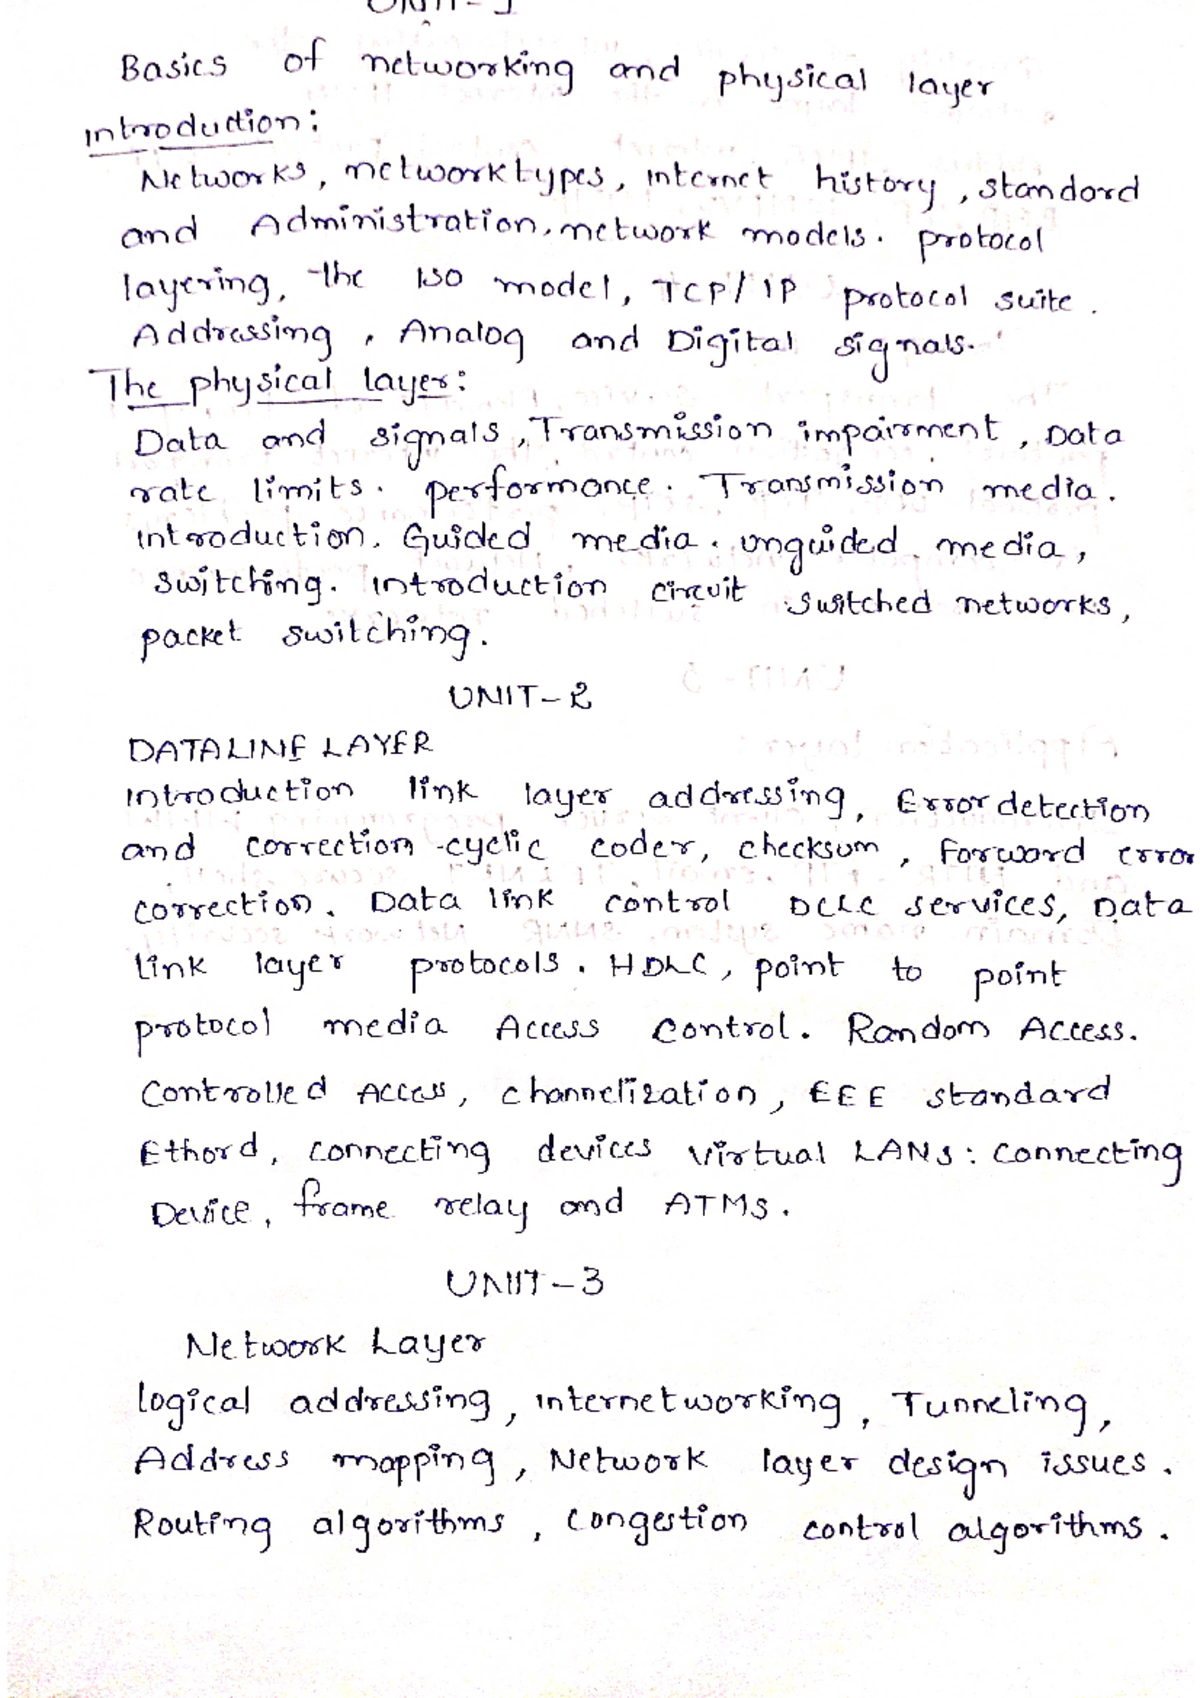 UNIT-1
Basics of networking and physical layer
introduction:
Networks, network types, internet history, standard
and Administration, network models. protocol
layering, the ISO model, TCP/IP protocol suite.
Addressing, Analog and Digital signals.
The physical layer:
Data and signals, Transmission impairment, Data
rate limits. performance. Transmission media.
introduction, Guided media. unguided media,
switching. introduction circuit switched networks,
packet switching.
UNIT-2
DATALINE LAYER
Introduction link layer addressing, Error detection
and correction-cyclic coder, checksum, forword error
correction. Data link control DCLC services, Data
link layer protocols. HDLC, point to point
protocol media Access control. Random Access.
Controlled Access, channelization, EEE standard
Ethord, connecting devices virtual LANs: connecting
Device, frame relay and ATMS.
UNIT-3
Network Layer
logical addressing, internetworking, Tunneling,
Address mapping, Network layer design issues.
Routing algorithms, congestion control algorithms.